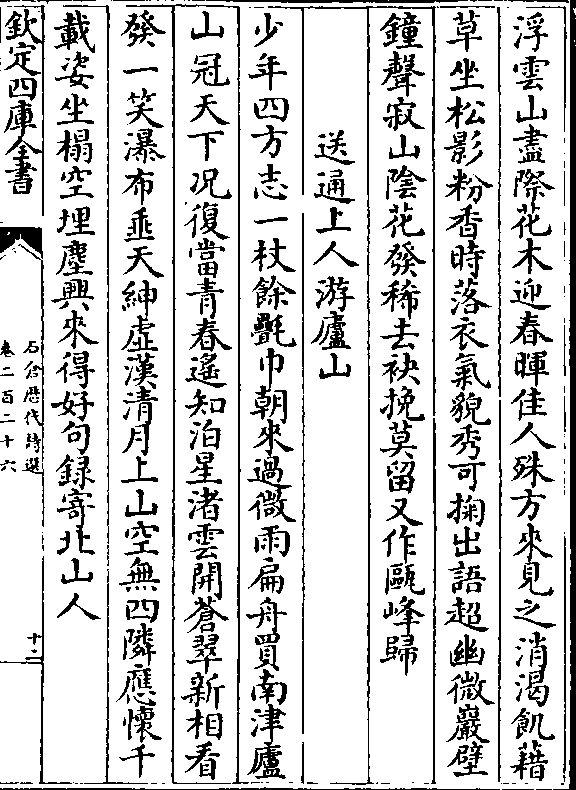 浮雲山盡際花木迎春暉佳人殊方來見之消渴飢藉
草坐松影粉香時落衣氣貌秀可掬出語超幽微巖壁
鐘聲寂山陰花發稀去袂挽莫留又作甌峰歸
送通上人游廬山
少年四方志一杖餘㲲巾朝來過微雨扁舟買南津廬
山冠天下况復當青春遙知泊星渚雲開蒼翠新相看
發一笑瀑布垂天紳虛漢清月上山空無四隣應懷千
載姿坐榻空埋塵興來得好句録寄北山人
欽定四庫全書
石倉歴代詩選
卷二百二十六
十二